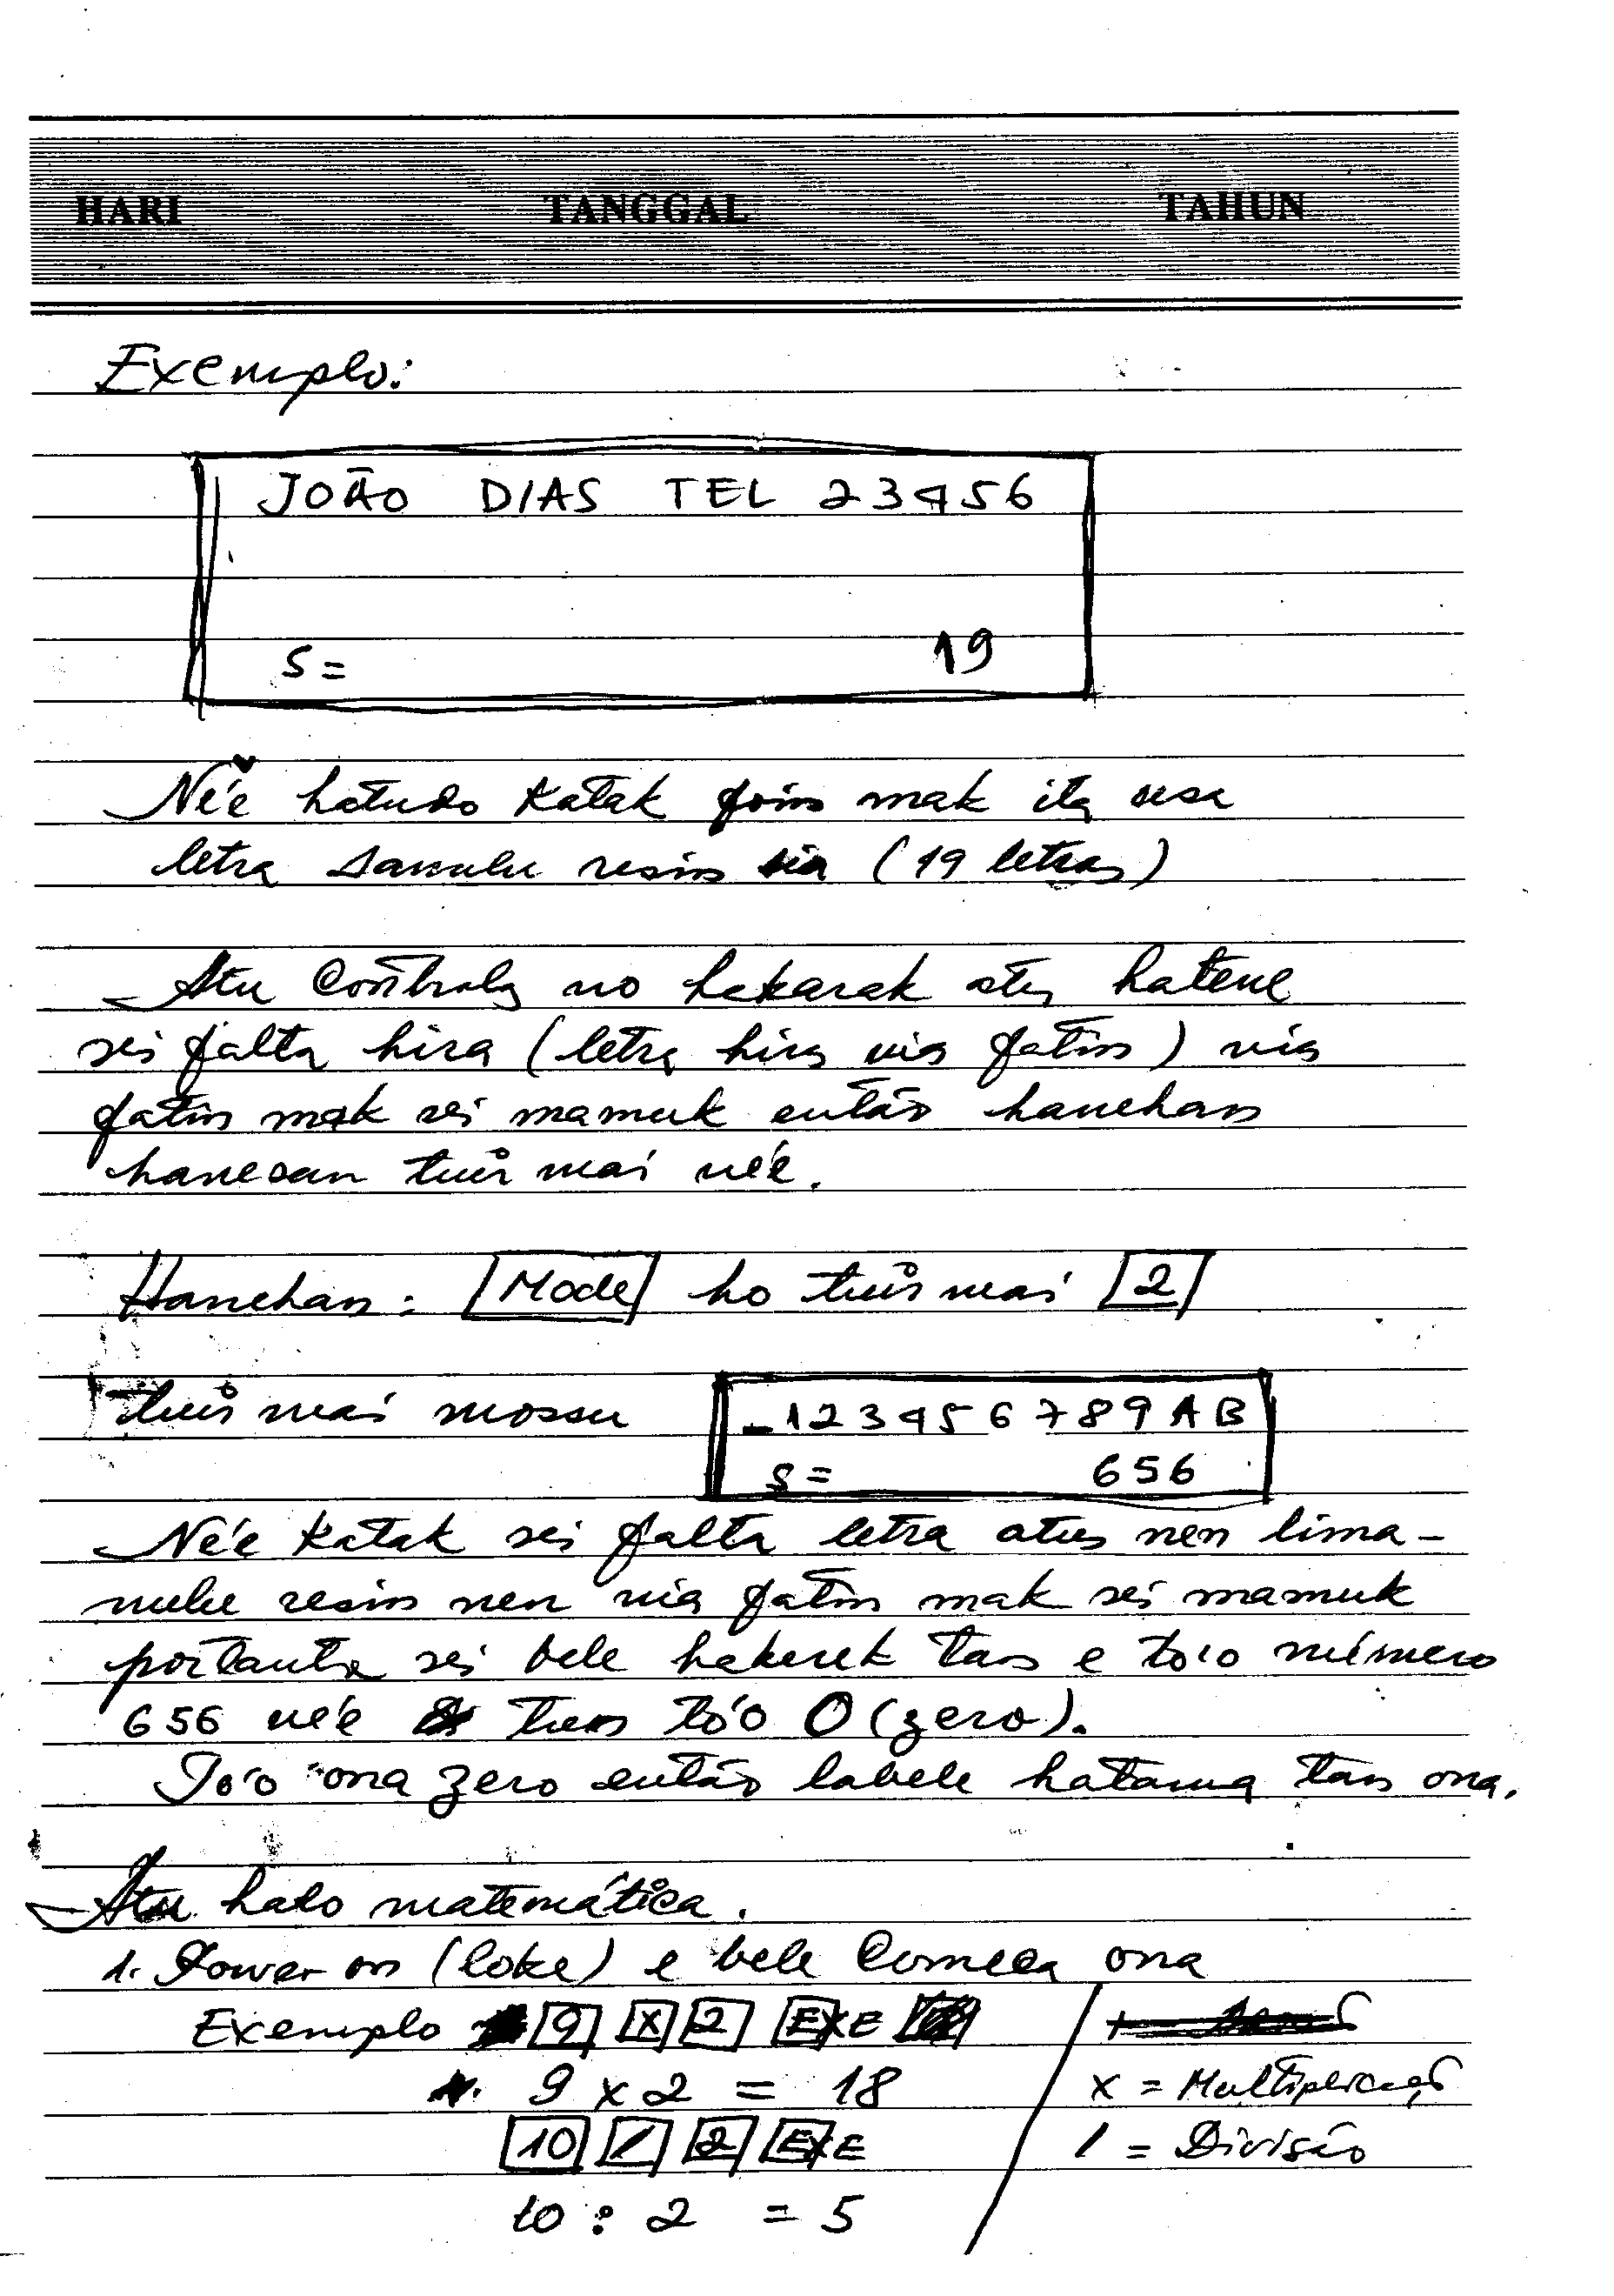 HARI TANGGAL TAHUN
Exemplo:
JOÃO DIAS TEL 23456
S= 19
Né'e hatudo katak foin mak ita usa
letra sanulu resin sia (19 letras)
Atu Controla no hakarak atu hatene
sei falta hira (letra hira nia fatin) nia
fatin mak sei mamuk então hanehan
hanesan tuir mai né'e.
Hanehan: Mode ho tuir mai 2
Tuir mai mossu
-123456789AB
S= 656
Né'e katak sei falta letra atus nen lima-
nulu resin nen nia fatin mak sei mamuk
portanto sei bele hakerek tan e to'o número
656 né'e tun tó'o 0 (zero).
To'o ona zero então labele hatama tan ona.
Atu halo matemática.
1. Power on (loke) e bele Começa ona
Exemplo 9 x 2 EXE
9 x 2 = 18 x = Multiplicação
10 / 2 EXE / = Divisão
10 : 2 = 5